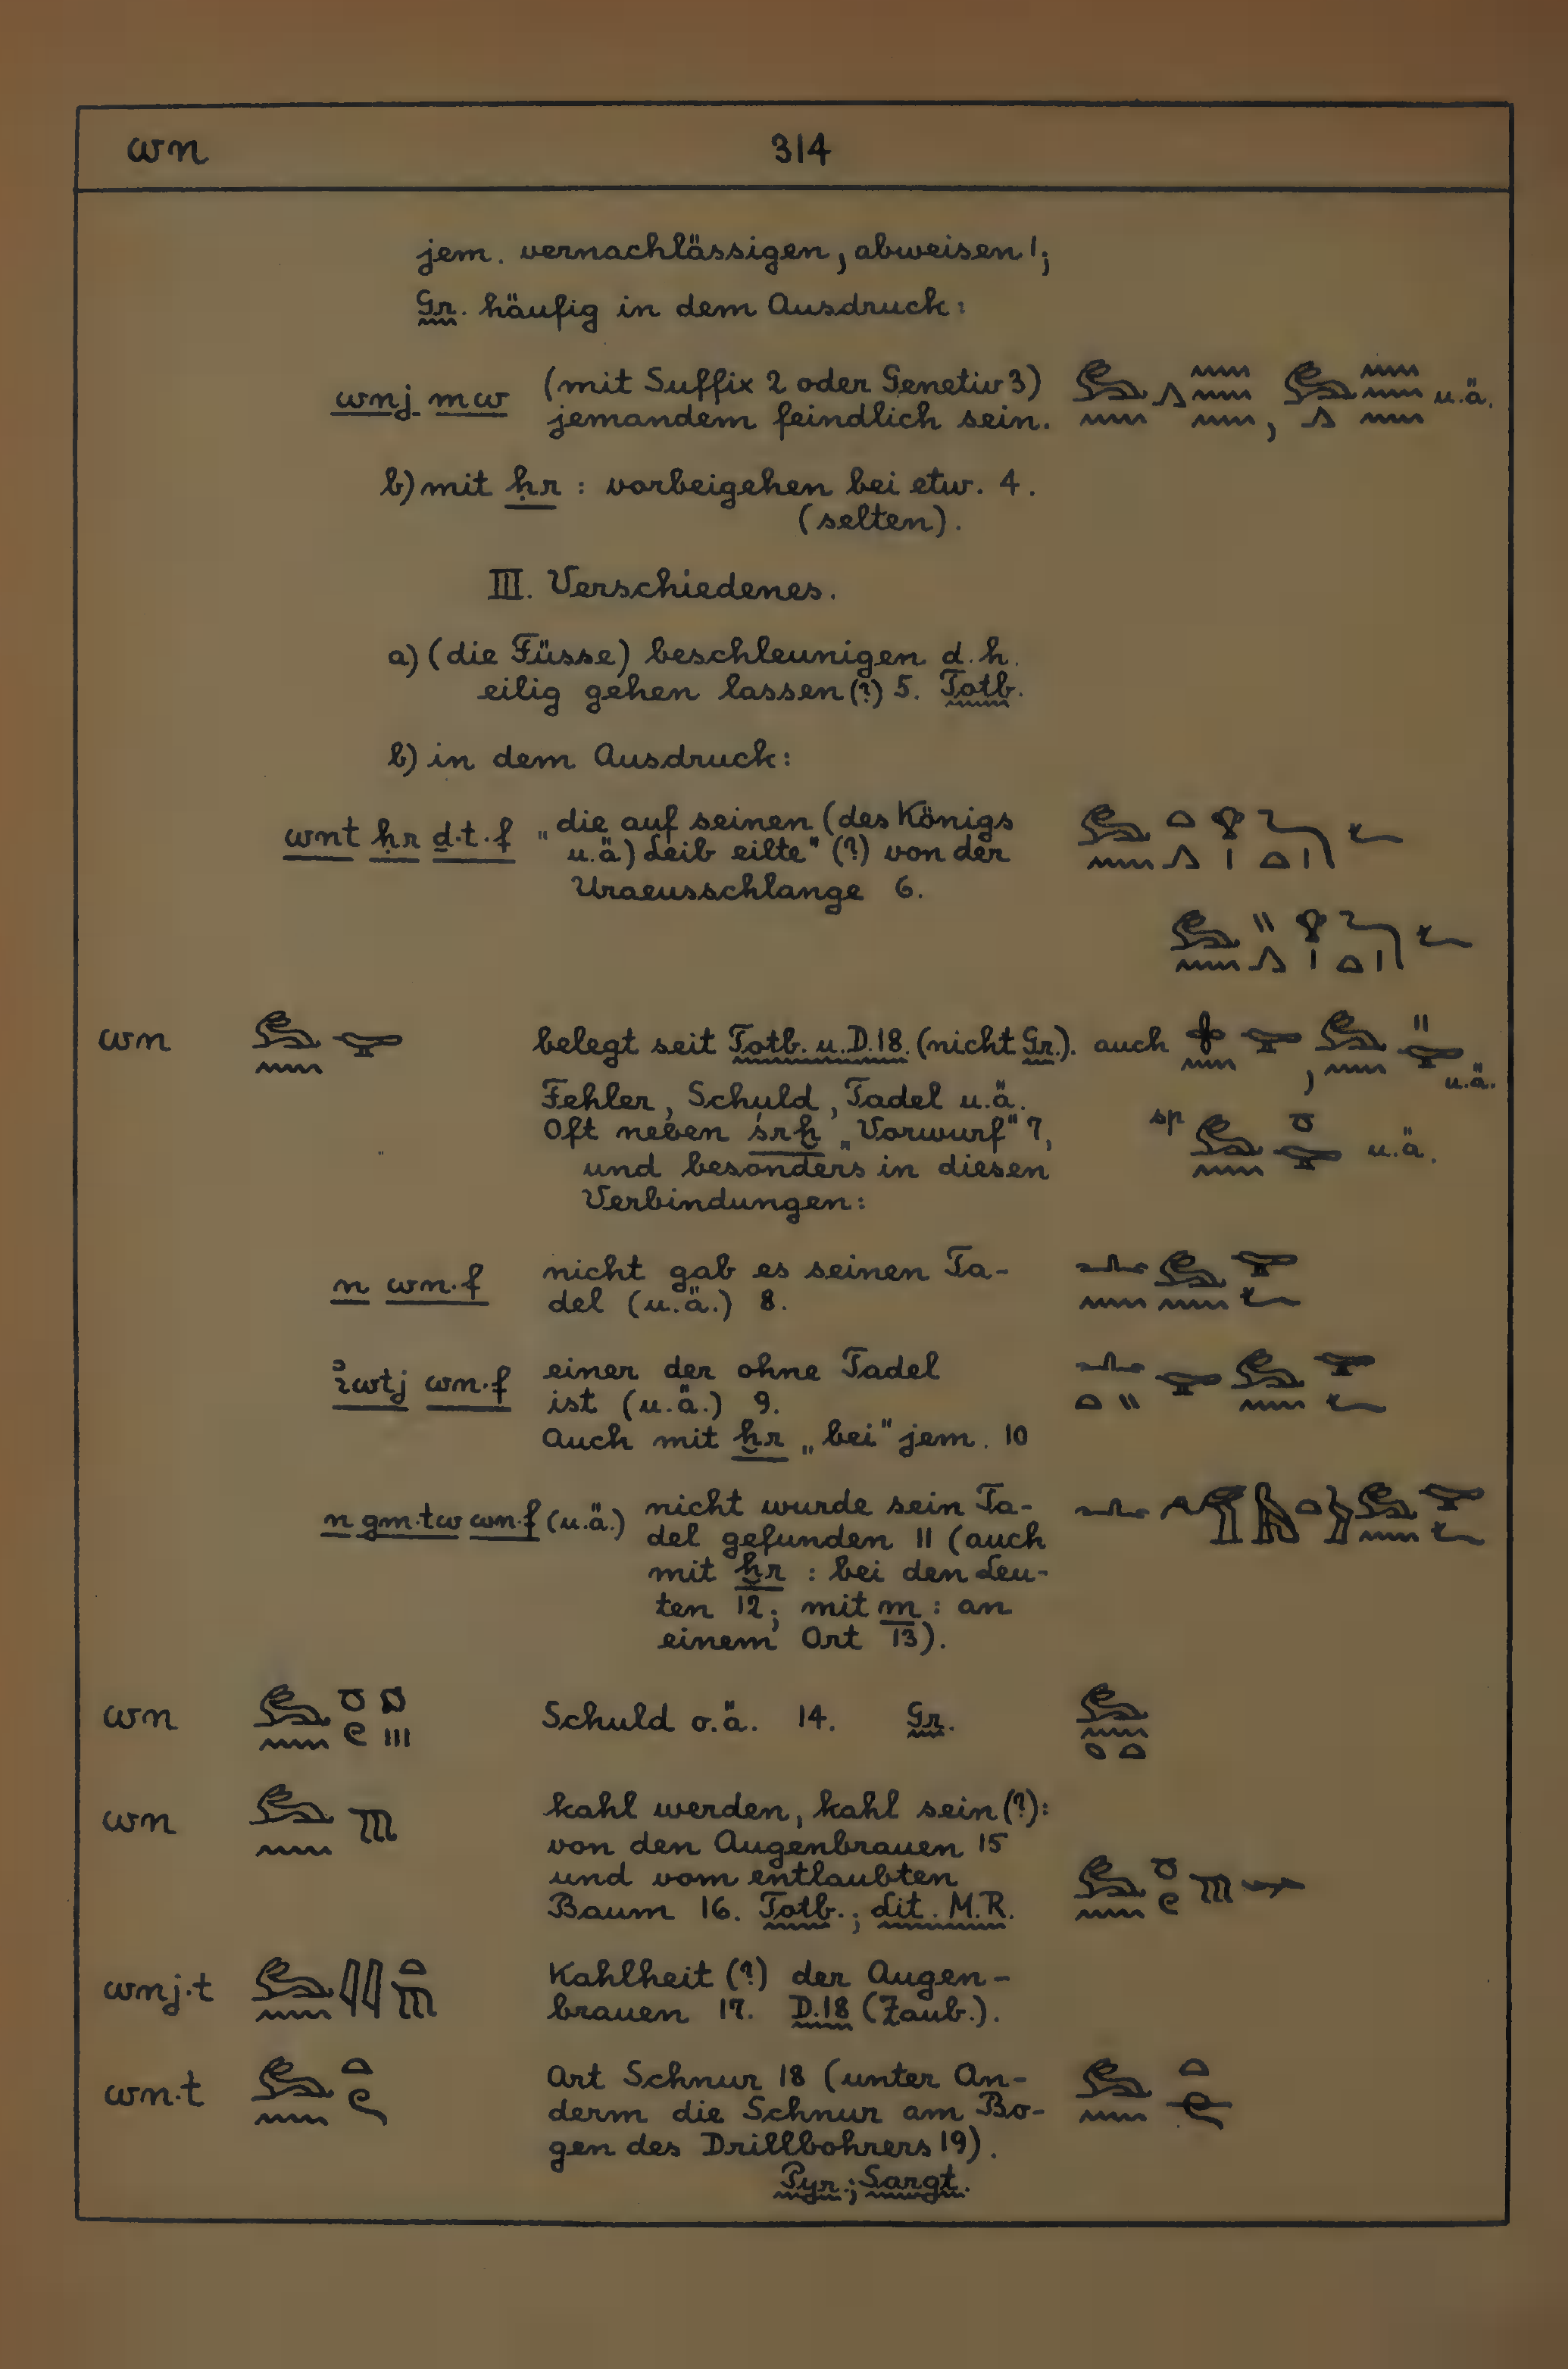 wn 314
jem. vernachlässigen, abweisen 1;
Gr. häufig in dem Ausdruck:
wnj mw (mit Suffix 2 oder Genetiv 3)
jemandem feindlich sein. , u.ä.
b) mit ḥr : vorbeigehen bei etw. 4.
(selten).
III. Verschiedenes.
a) (die Füsse) beschleunigen d.h.
eilig gehen lassen (?) 5. Totb.
b) in dem Ausdruck:
wnt ḥr ḏ.t.f „die auf seinen (des Königs
u.ä) Leib eilte" (?) von der
Uraeusschlange 6.
wn belegt seit Totb. u. D.18. (nicht Gr.). auch , u.ä.
Fehler, Schuld, Tadel u.ä.
Oft neben śrḫ „Vorwurf" 7, sp u.ä.
und besonders in diesen
Verbindungen:
n wn.f nicht gab es seinen Ta-
del (u.ä.) 8.
ꞽwtj wn.f einer der ohne Tadel
ist (u.ä.) 9.
Auch mit ḫr „bei" jem. 10
n gm.tw wn.f (u.ä.) nicht wurde sein Ta-
del gefunden 11 (auch
mit ḫr : bei den Leu-
ten 12; mit m : an
einem Ort 13).
wn Schuld o.ä. 14. Gr.
wn kahl werden, kahl sein (?):
von den Augenbrauen 15
und vom entlaubten
Baum 16. Totb.; Lit. M.R.
wnj.t Kahlheit (?) der Augen-
brauen 17. D.18 (Zaub.).
wn.t Art Schnur 18 (unter An-
derm die Schnur am Bo-
gen des Drillbohrers 19).
Pyr.; Sargt.